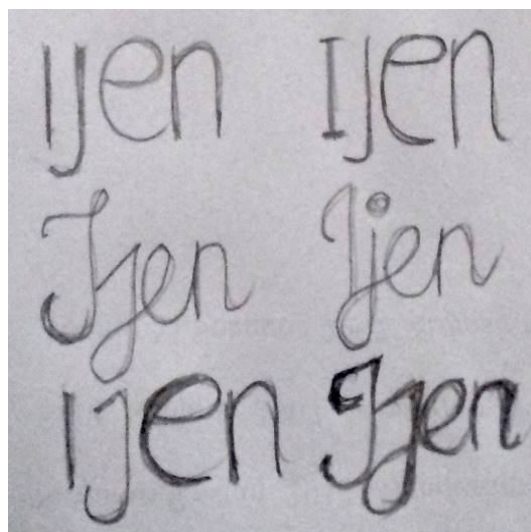 Ijen Ijen
Ijen Ijen
Ijen Ijen